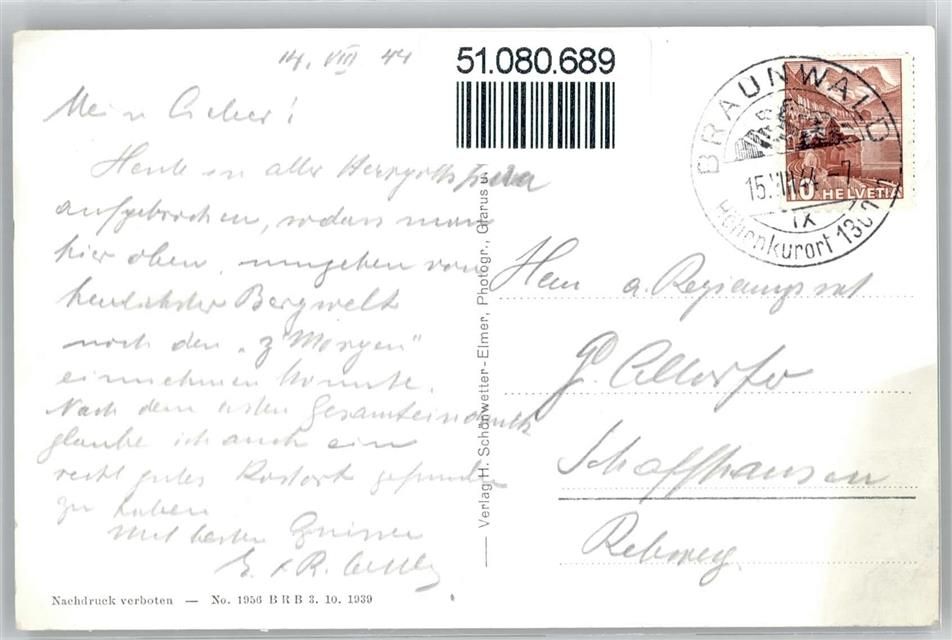 14. VIII 44
51.080.689
Mein Lieber!
Heute in aller Herrgottsfrüh
aufgebrochen, sodass man
hier oben, umgeben von
herrlichster Bergwelt
noch den „z'Morgen"
einnehmen konnte.
Nach dem ersten Gesamteindruck
glaube ich auch ein
recht gutes Kostort gefunden
zu haben
Mit besten Grüssen
E. + R.
Nachdruck verboten — No. 1956 B R B 3. 10. 1939
— Verlag H. Schönwetter-Elmer, Photogr., Glarus u.
BRAUNWALD
15. VIII. 44 - 7
IX
Höhenkurort 1300 m
10 HELVETIA
Herrn a. Regierungsrat
Schaffhausen
Rebweg